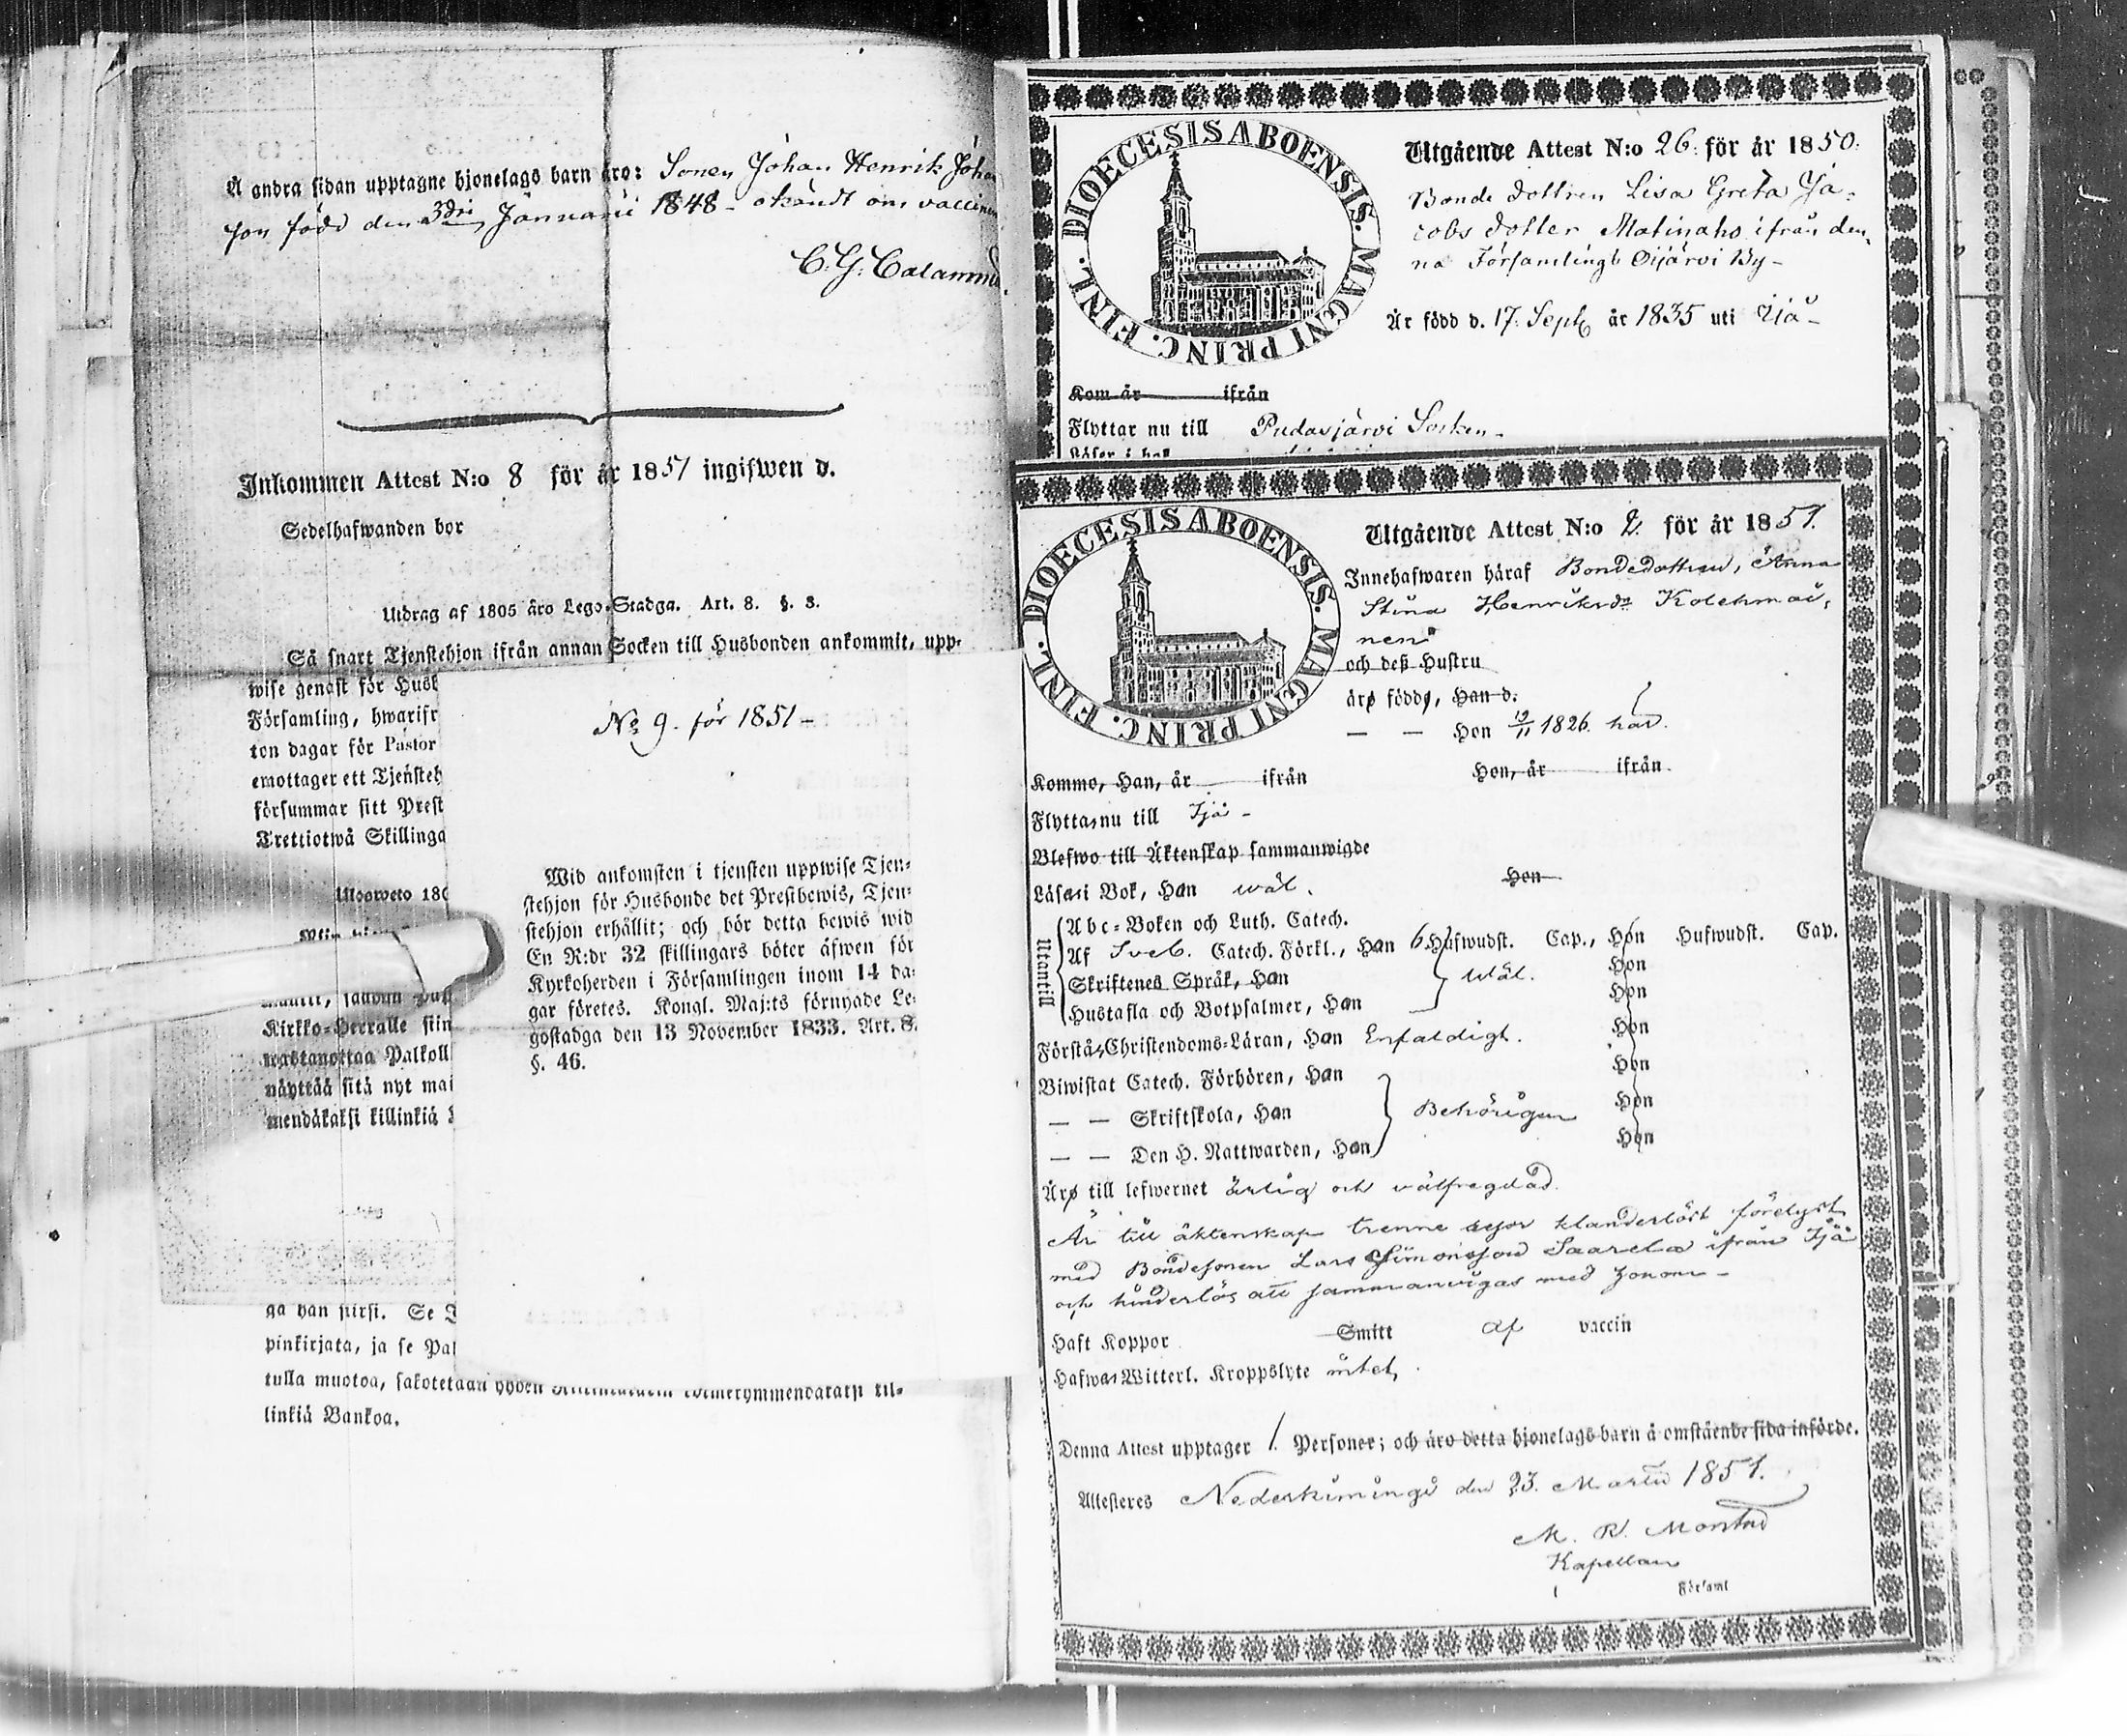 Å andra sidan upptagne hjonelags barn äro: Sonen Johan Henrik Joha
son född den 3dri Januarii 1848 - okändt om
C. G. Calamni
Inkommen Attest N:o 8 för år 1851 ingifwen d.
Sedelhafwanden bor
Utdrag af 1805 års Lego-Stadga. Art. 8. §. 3.
Så snart Tjenstehjon ifrån annan Socken till Husbonden ankommit, upp-
wise genast för Husb
Församling, hwarifr
ton dagar för Pastor
emottager ett Tjensteh
försummar sitt Prest
Trettiotwå Skillinga
Ulosweto 180
Kirkko-Herralle siin
wastanottaa Palkoll
näyttää sitä nyt mai
mendäkaksi killinkiä
ga han pirsi. Se
pinkirjata, ja se Pal
tulla muotoa, sakotetaan
linkiä Bankoa.
No 9. för 1851 -
Wid ankomsten i tjensten uppwise Tjen-
stehjon för Husbonde det Prestbewis, Tjen-
stehjon erhållit; och bör detta bewis wid
En R:dr 32 skillingars böter äfwen för
Kyrkoherden i Församlingen inom 14 da-
gar företes. Kongl. Maj:ts förnyade Le-
gostadga den 13 November 1833. Art. 8.
§. 46.
DIOECESIS ABOENSIS. MAGNI PRINC. FINL.
Utgående Attest N:o 26. för år 1850.
Bonde dottren Lisa Greta Ja-
cobs dotter Matinaho ifrån den-
na Församlings Oijärvi By -
Är född d. 17. Sept. år 1835 uti Ijå -
Kom år ifrån
Flyttar nu till Pudasjärvi Socken -
DIOECESIS ABOENSIS. MAGNI PRINC. FINL.
Utgående Attest N:o 2. för år 1851.
Innehafwaren häraf Bondedottren, Anna
Stina Henriksdr Kolehmai-
nen
och deß Hustru
äro födde, Han d.
— — Hon 12/11 1826. här.
Kommo, Han, år ifrån Hon, år ifrån
Flytta nu till Ijå -
Blefwo till Äktenskap sammanwigde
Läsa i Bok, Han wäl. Hon
Utantill
Abc-Boken och Luth. Catech.
Af Sveb. Catech. Förkl., Han 6 Hufwudst. Cap., Hon Hufwudst. Cap.
Skriftenes Språk, Han Wäl. Hon
Hustafla och Botpsalmer, Han Hon
Förstå Christendoms-Läran, Han Enfaldigt. Hon
Biwistat Catech. Förhören, Han Hon
— — Skriftskola, Han Behörigen Hon
— — Den H. Nattwarden, Han Hon
Äro till lefwernet ärlig och välfregdad.
Är till äktenskap trenne resor klanderlöst förelyst
med Bondesonen Lars Simonsson Saarela ifrån Ijå
och hinderlös att sammanvigas med honom -
Haft Koppor Smitt af vaccin
Hafwa Witterl. Kroppslyte intet.
Denna Attest upptager 1. Personer; och äro detta hjonelags barn å omstående sida införde.
Attesteres Nederkiminge den 23. Martii 1851.
M. R. Monstad
Kapellan
Församl